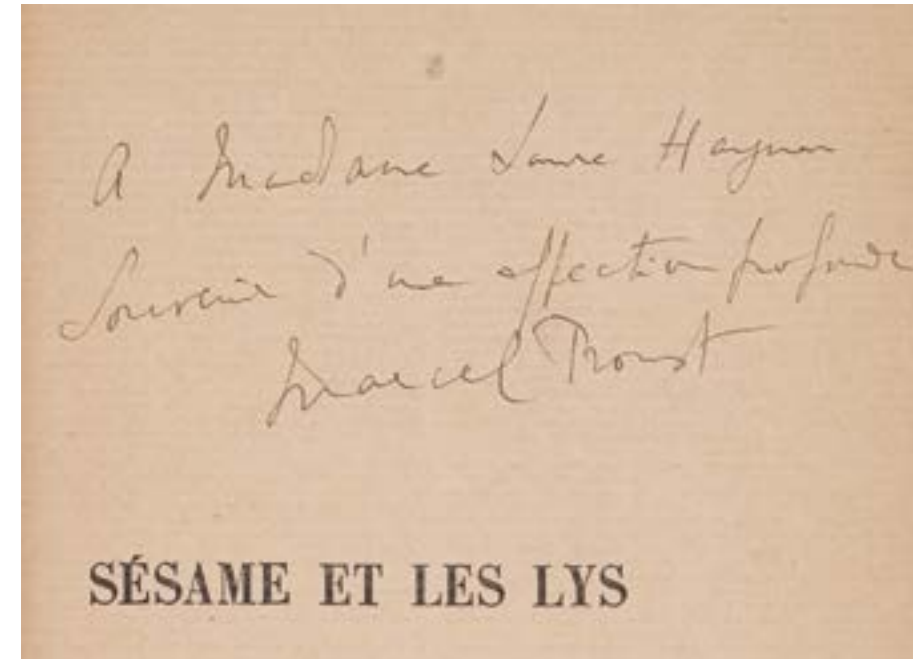 A Madame Laure Hayman
Souvenir d'une affection profonde
Marcel Proust
SÉSAME ET LES LYS